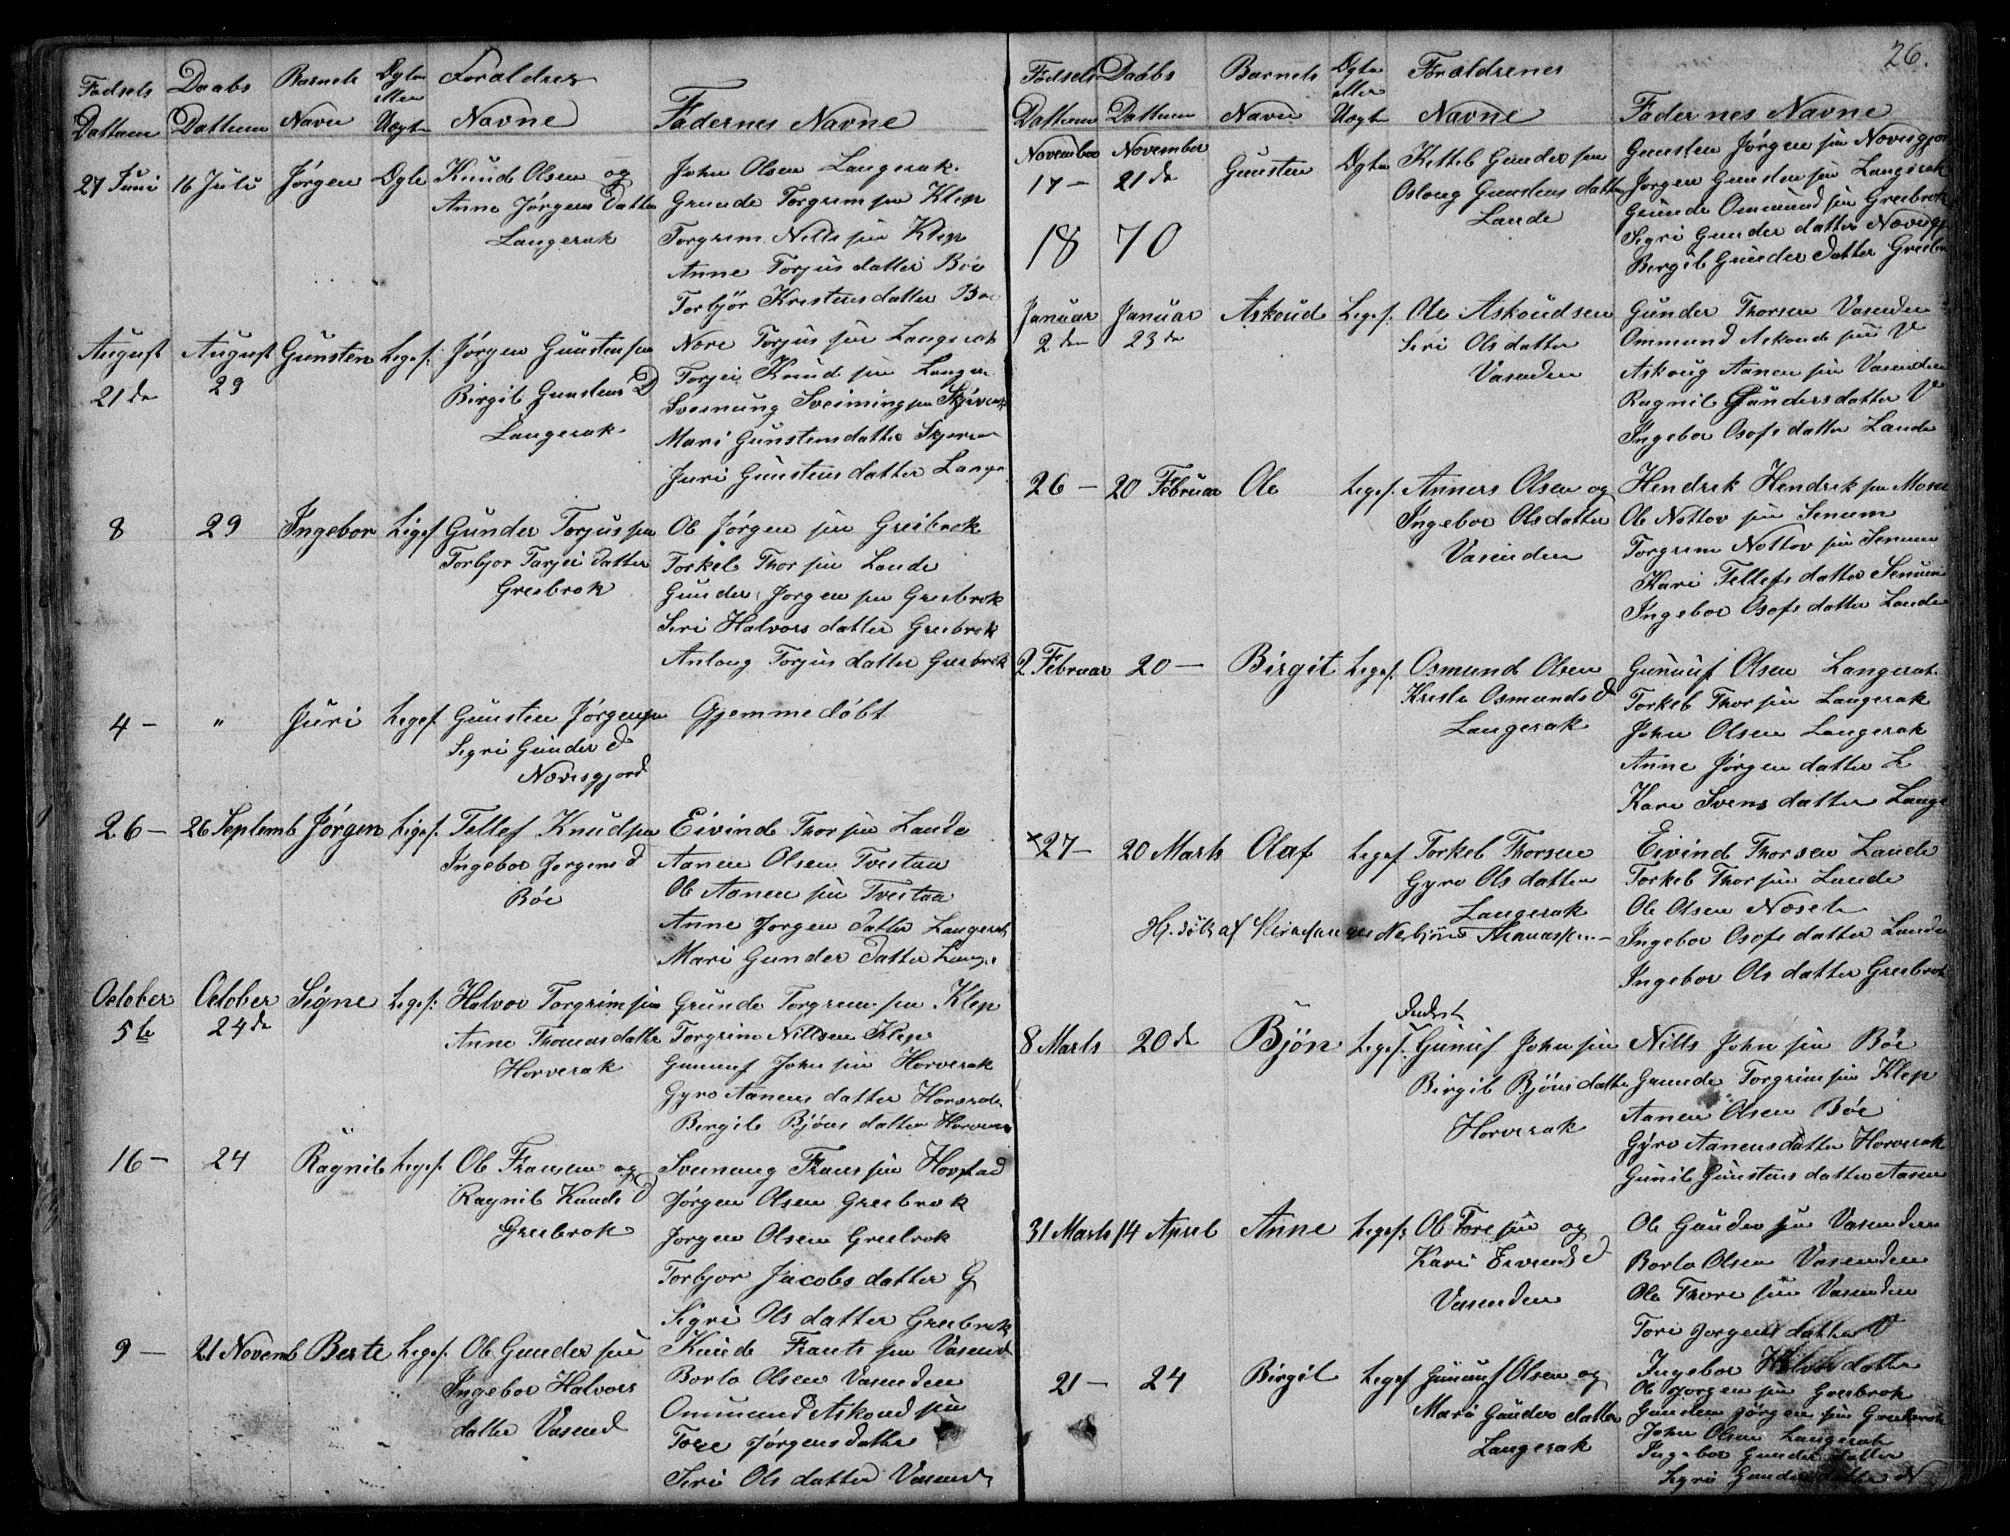 Fødsels Daabs Barnets Ægte Forældres
Dattum Dattum Navn eller Uægte Navne Fadernes Navne
27 Juni 16 Juli Jørgen Ægte Knud Olsen og
Anne Jørgens Datter
Langerak
John Olsen Langerak
Grunde Torgrim sen Klep
Torgrim Nills sen Klep
Anne Torjus datter Böe
Torbjör Kristens datter
August 21de August 29 Gunsten Legef: Jørgen Gunsten sen
Birgit Gunstens D
Langerak
Nore Torjus sen Langerak
Torjei Knud sen
Svenung
Mari Gunstens datter
Juri Gunstens datter
8 29 Ingebor Ligef Gunder Torjus sen
Torbjor Tarjei datter
Greibrok
Ole Jørgen sen Greibrok
Torkel Thor sen Lande
Gunder Jørgen sen Greibrok
Siri Halvors datter Greibrok
Anlaug Torjus datter Greibrok
4 — " Juri Legef Gunsten Jørgensen
Sigri Gunder d
Nævisgjord
Gjemmedöbt
26 — 26 Septemb Jørgen Ligef: Tellef Knudsen
Ingebor Jorgens d
Böe
Eivind Thor sen Lande
Aanen Olsen Tveitaa
Ole Aanen sen Tveitaa
Anne Jørgen datter Langerak
Mari Gunder datter
October 5te October 24de Signe Legef: Halvor Torgrim sen
Anne Thomas datter
Horverak
Grunde Torgrem sen Klep
Torgrim Nillsen Klep
Gunuf John sen Horverak
Gyro Aanens datter
Bergit Bjöns datter
16 — 24 Ragnil Legef: Ole Fransen og
Ragnil Knuds D
Greibrok
Svenung Frans sen
Jørgen Olsen Greibrok
Jorgen Olsen Greibrok
Torbjor Jacobs datter G
Sigri Ols datter Greibrok
9 — 21 Novemb Berte Legef: Ole Gunder sen
Ingebor Halvors
datter Vasend
Knud Frants sen Vasend
Borto Olsen Vasenden
Ommund Askoud sen
Tore Jørgens datter
Siri Ols datter Vasend
26.
Fødsels Daabs Barnets Ægte Forældrenes
Dattum Dattum Navn eller Uægte Navne Fadernes Navne
November 17 — November 21de Gunsten Ægte Kittel Gunder sen
Oslaug Gunstens datter
Lande
Gunsten Jørgen sen
Jørgen Gunsten sen Langerak
Grunde Ommund sen Greibrok
Sigri Gunder datter
Bergit Gunder datter
18 70
Januar 2den Januar 23de Askoud Legef: Ole Askoudsen
Siri Ols datter
Vasenden
Gunder Thorsen Vasenden
Ommund Askoud sen V
Askoug Aanen sen Vasenden
Ragnil Gunders datter V
Ingebor Osofs datter Lande
26 — 20 Februar Ole Legef: Anners Olsen og
Ingebor Olsdatter
Vasenden
Hendrek Hendrek sen
Ole Nottov sen Senum
Torgrim Nottov sen Senum
Kari Tellefs datter Senum
Ingebor Osofs datter Lande
2 Februar 20 — Birgit Legef: Osmund Olsen
Kriste Osmunds d
Langerak
Gunuuf Olsen Langerak
Torkel Thor sen Langerak
John Olsen Langerak
Anne Jørgen datter L
Kari Svens datter
×27 — 20 Marts Olaf Legef Torkel Thorsen
Gyro Ols datter
Langerak
Eivind Thorsen Lande
Torkel Thor sen Lande
Ole Olsen Næset
Ingebor Osofs datter Lande
Ingebor Ols datter Greibrok
8 Marts 20de Bjön Legef: Gunuf John sen
Birgit Bjöns datter
Horverak
Nills John sen Böe
Grunde Torgrim sen Klep
Aanen Olsen Böe
Gyro Aanens datter Horverak
Gunil Gunstens datter Aasen
31 Marts 14 April Anne Legef: Ole Tore sen og
Kari d
Vasenden
Ole Gunder sen Vasenden
Borto Olsen Vasenden
Ole Thore sen Vasenden
Tori Jorgens datter V
Ingebor Halvors datter
21 — 24 Birgit Legef Gunuuf Olsen og
Mari Gunder datter
Langerak
Ole Jorgen sen Greibrok
Gunsten Jörgen sen Greibrok
John Olsen Langerak
Ingebor Gunder datter
Sigri Gunder datter N